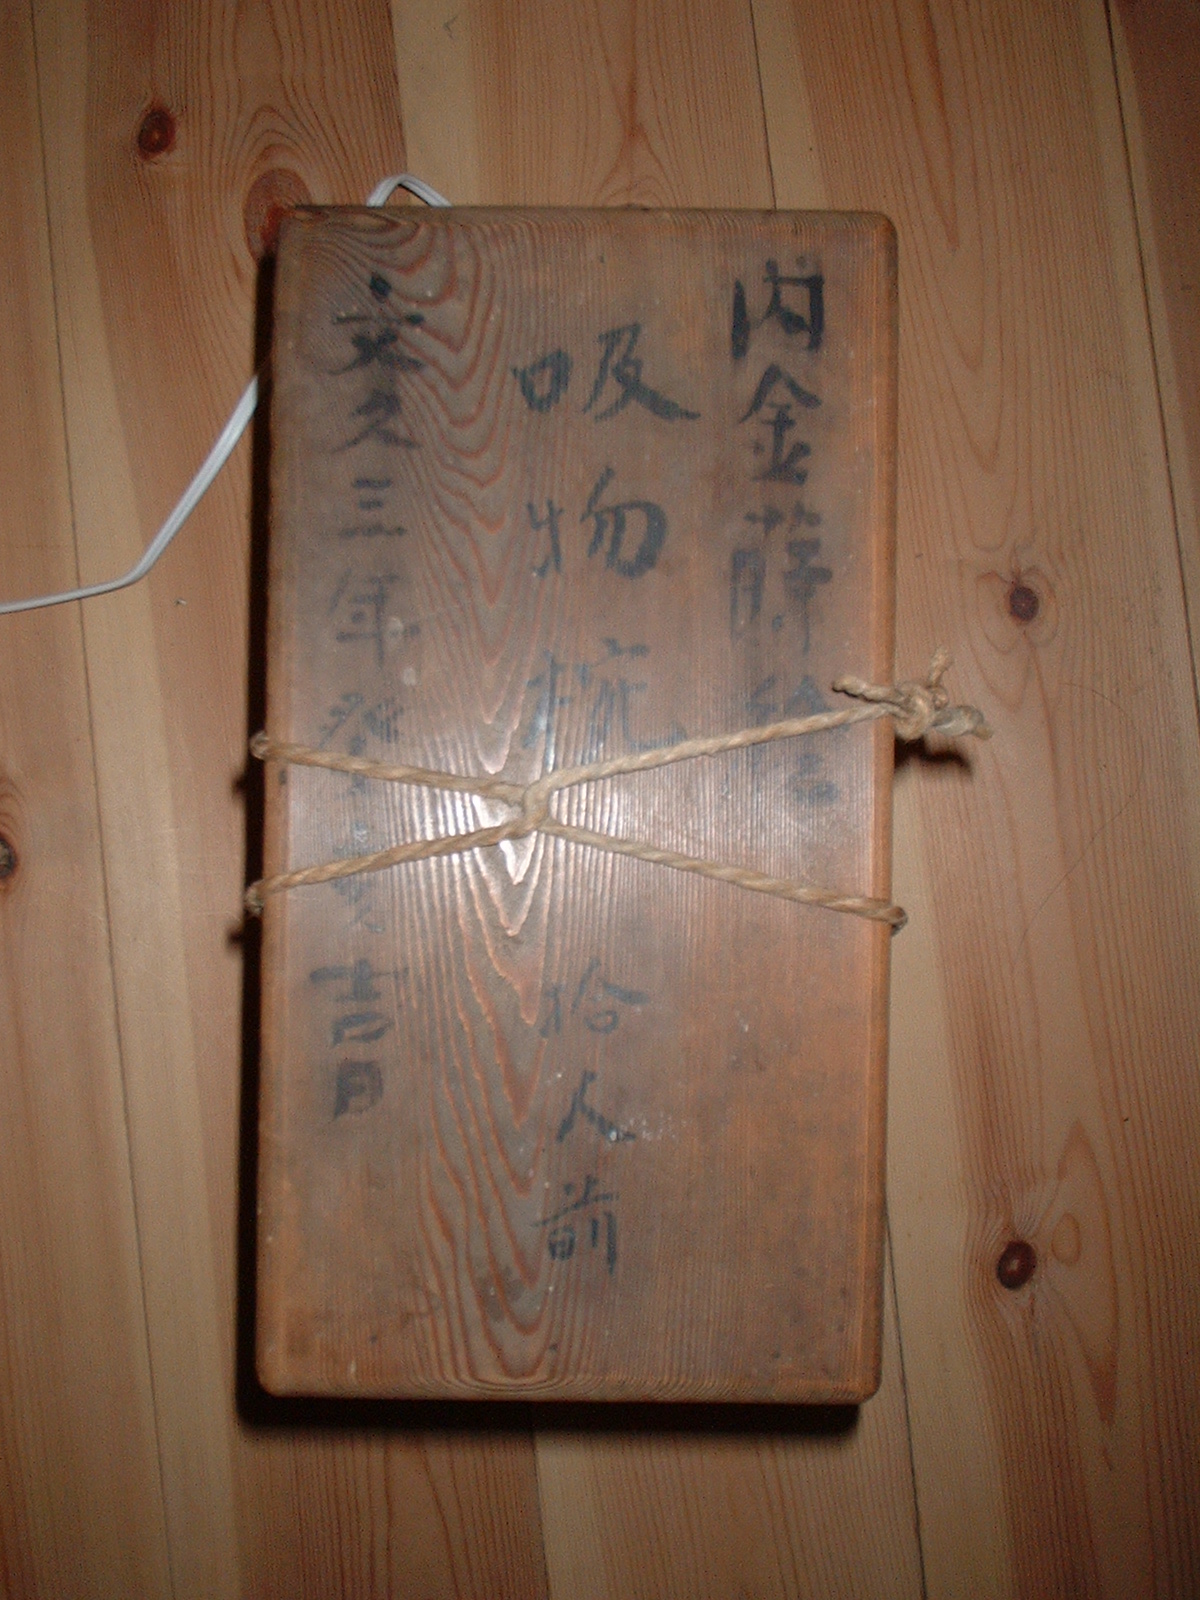 内金蒔絵
吸物椀 拾人前
文久三年癸亥 吉日